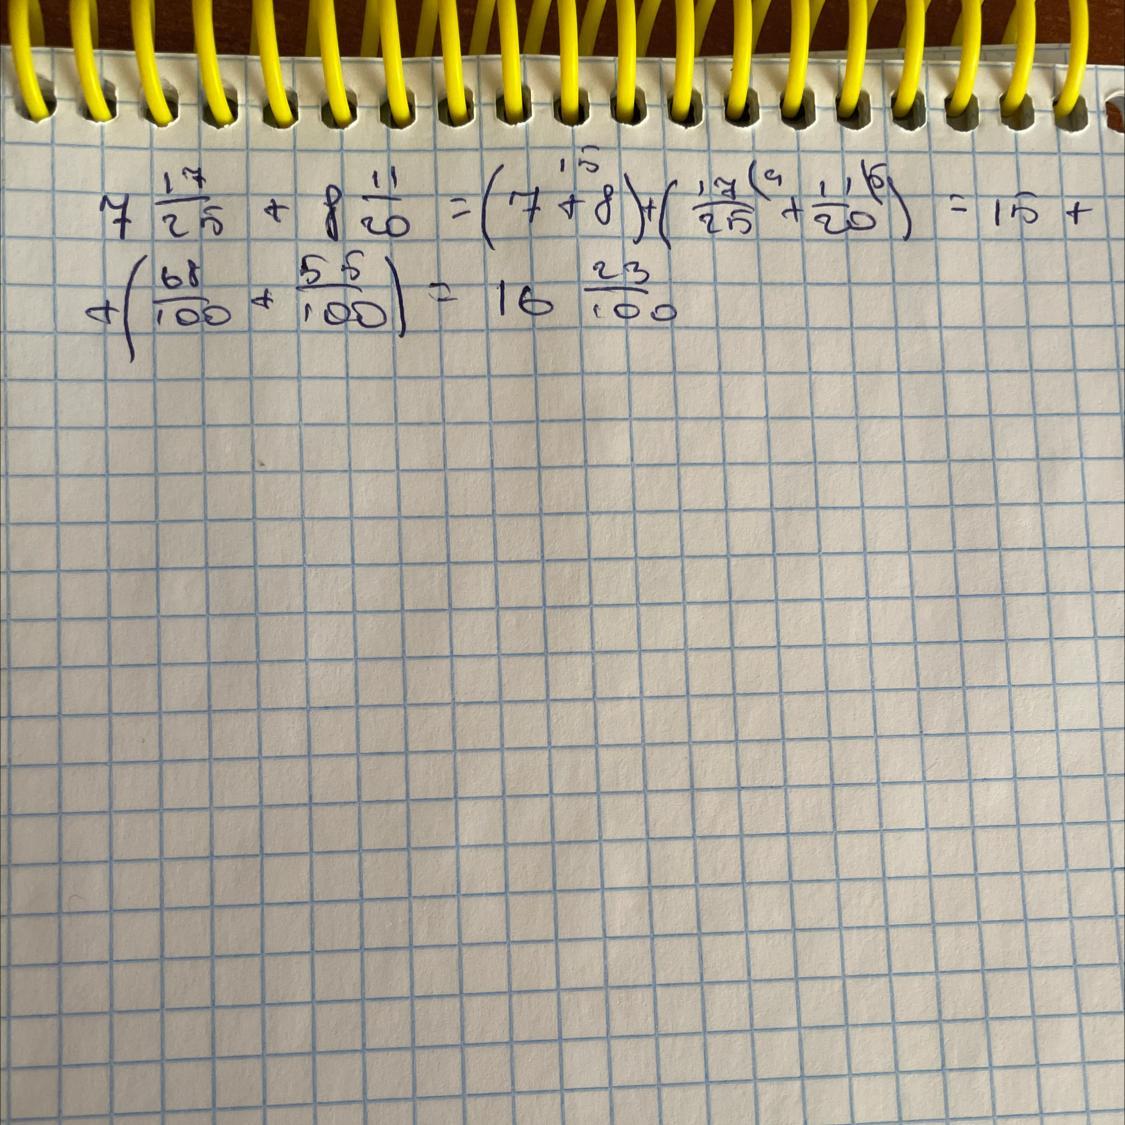 7 17/25 + 8 11/20 = (7 + 8) 15 + (17/25 (4 + 11/20 (5) = 15 +
+ (68/100 + 55/100) = 16 23/100